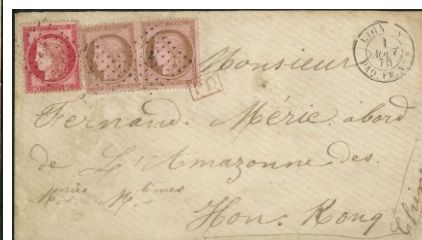 Monsieur
Fernand. Mérie. abord
de L'Amazonne des.
Hon. Kong
Chine
P.D.